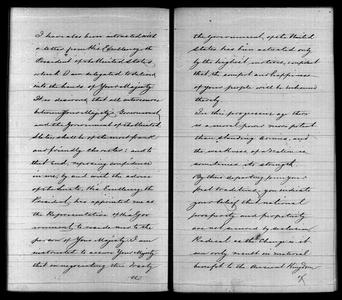 I have also been intrusted with
a letter from His Excellency the
President of the United States,
which I am delegated to deliver
into the hands of Your Majesty.
It is desired, that all intercourse
between Your Majesty's Government
and the Government of the United
States shall be of the most frank
and friendly character; and to
that End, reposing confidence
in me, by and with the advice
of the Senate, His Excellency the
President, has appointed me as
the Representative of that Gov
ernment to reside near to the
person of Your Majesty. I am
instructed to assure Your Majesty
that in negotiating this treaty
the
the government, of the United
States has been actuated only
by the highest motives, confident
that, the comfort and happiness
of your people will be enhanced
thereby.
In this progressive age there
is a moral power more potent
than standing armies, and
the weakness of a nation is
sometimes its strength.
By this departing from your
past traditions, you indicate
your belief that national
prosperity and perpetuity
are not secured by seclusion.
Radical as the Change is it
can only result in material
benefit to the Ancient Kingdom